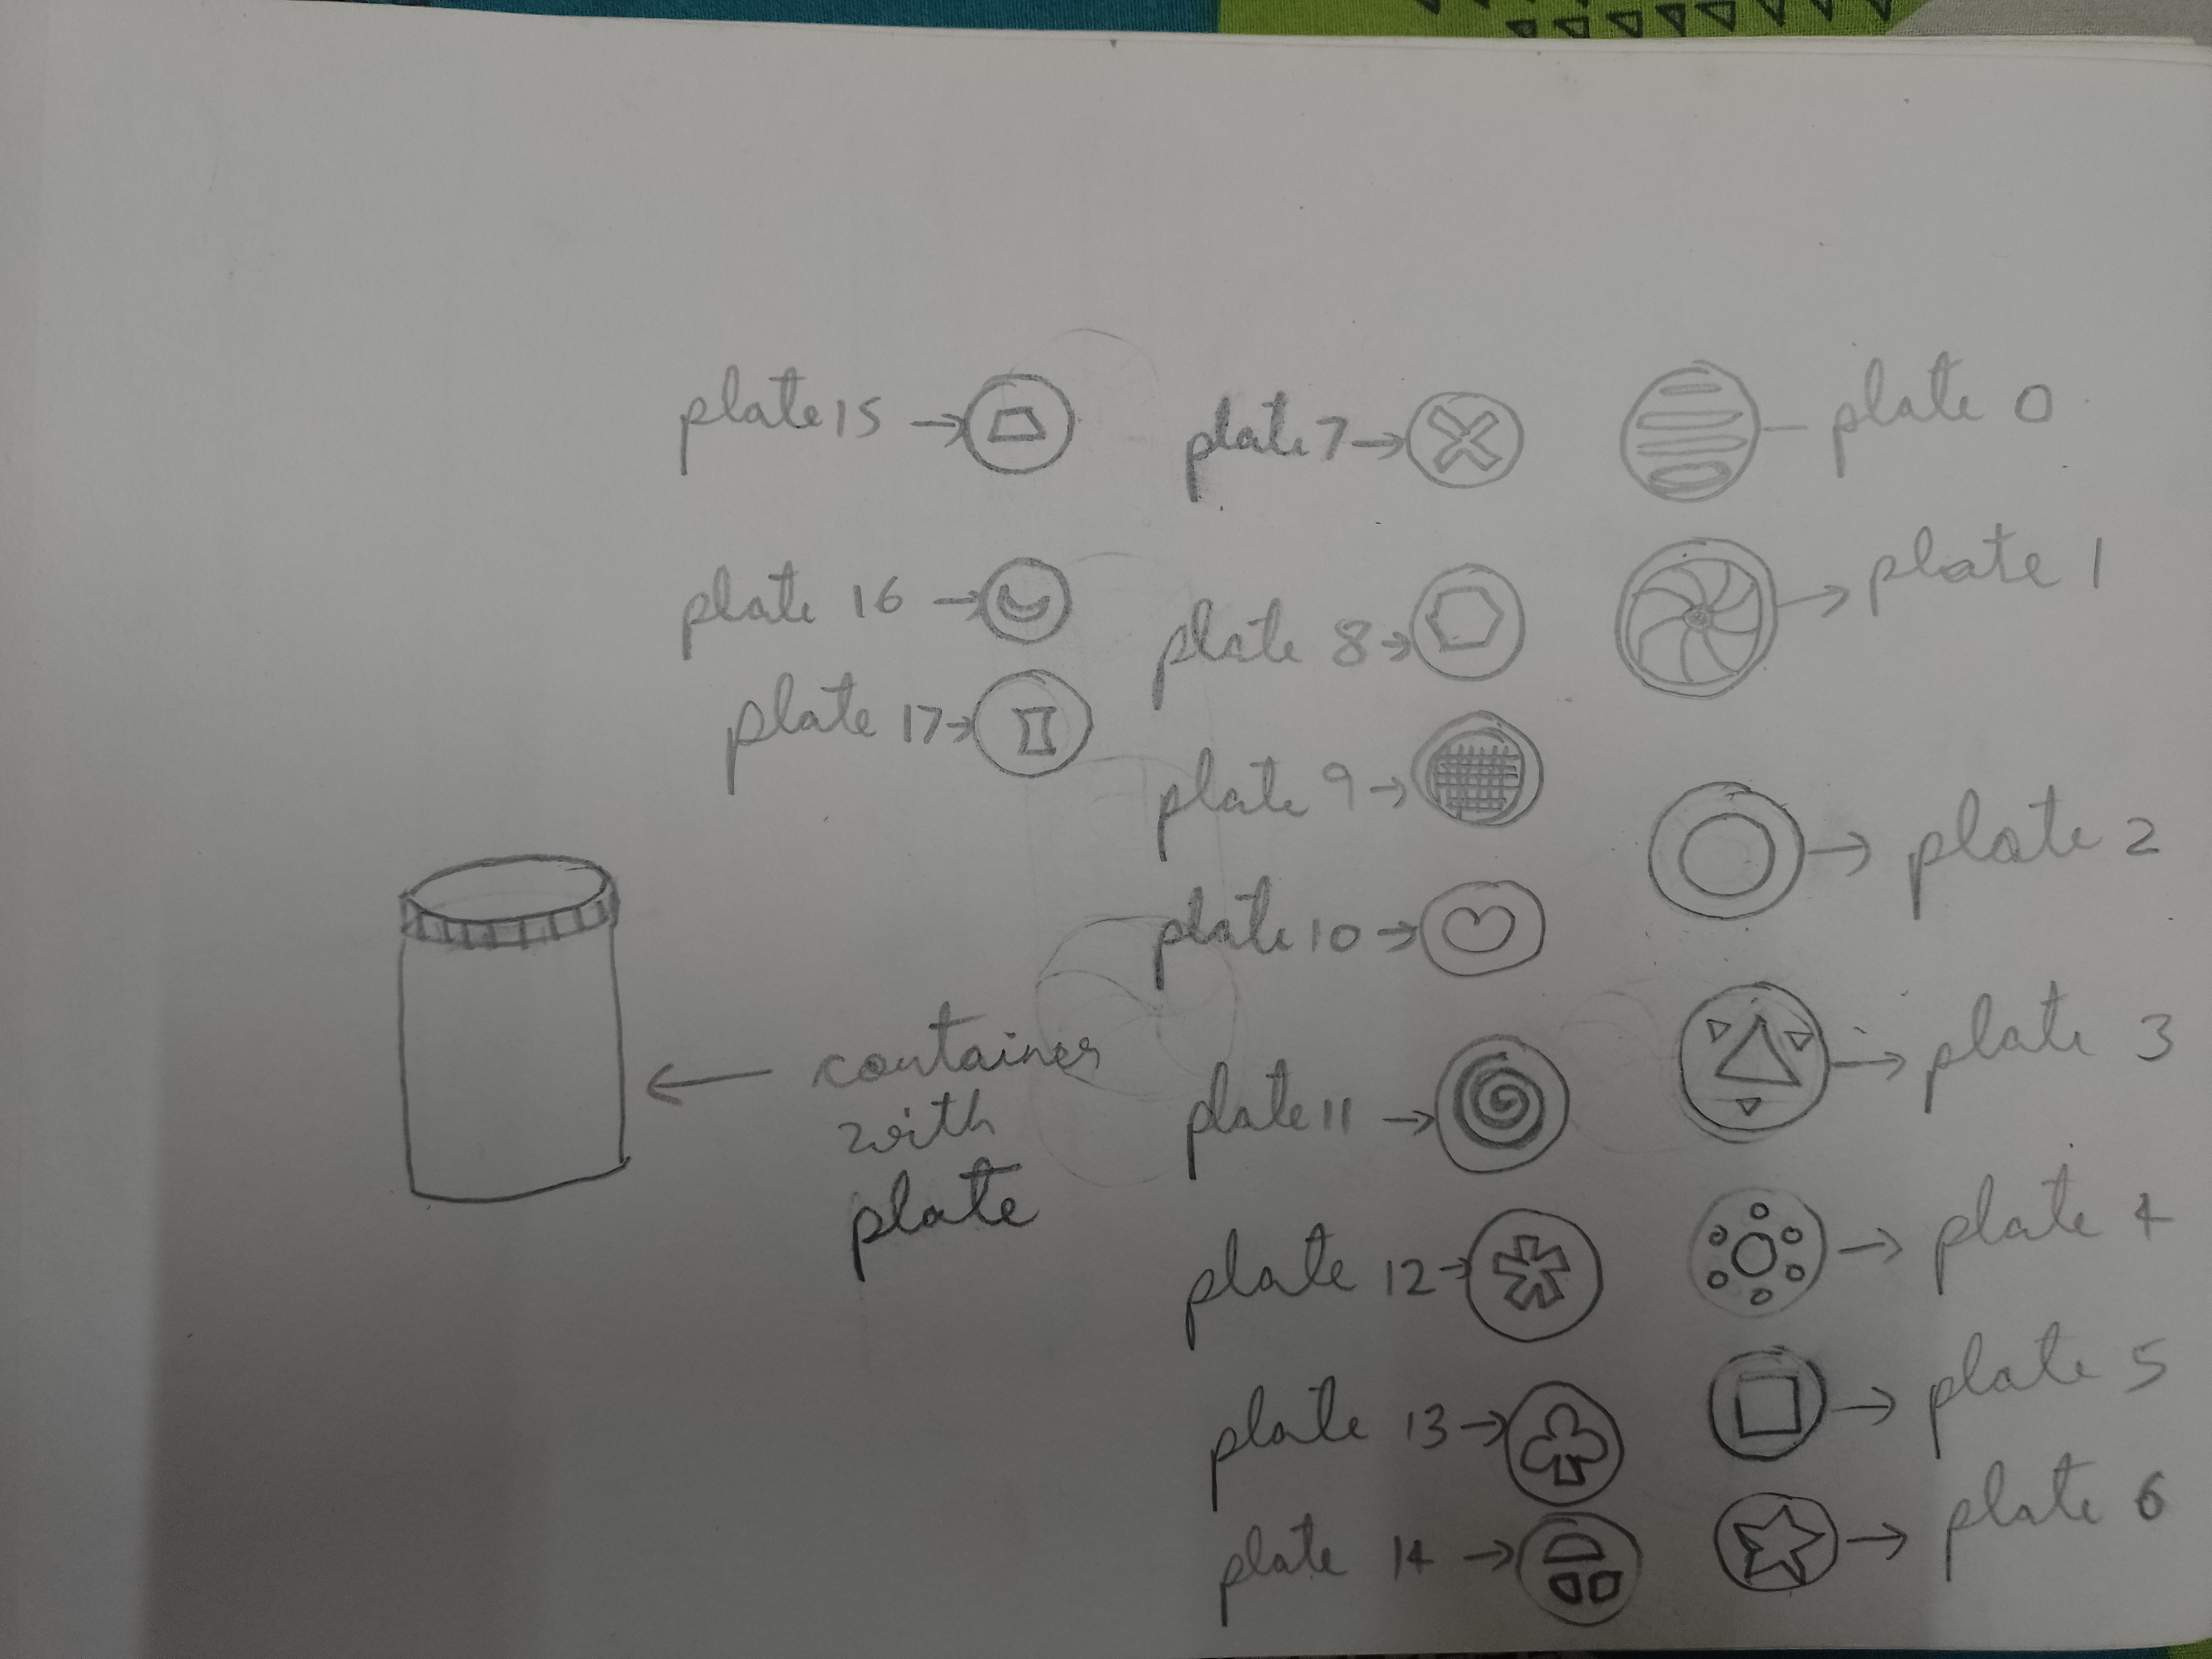 plate 15
plate 16
plate 17
container
with
plate
plate 7
plate 8
plate 9
plate 10
plate 11
plate 12
plate 13
plate 14
plate 0
plate 1
plate 2
plate 3
plate 4
plate 5
plate 6